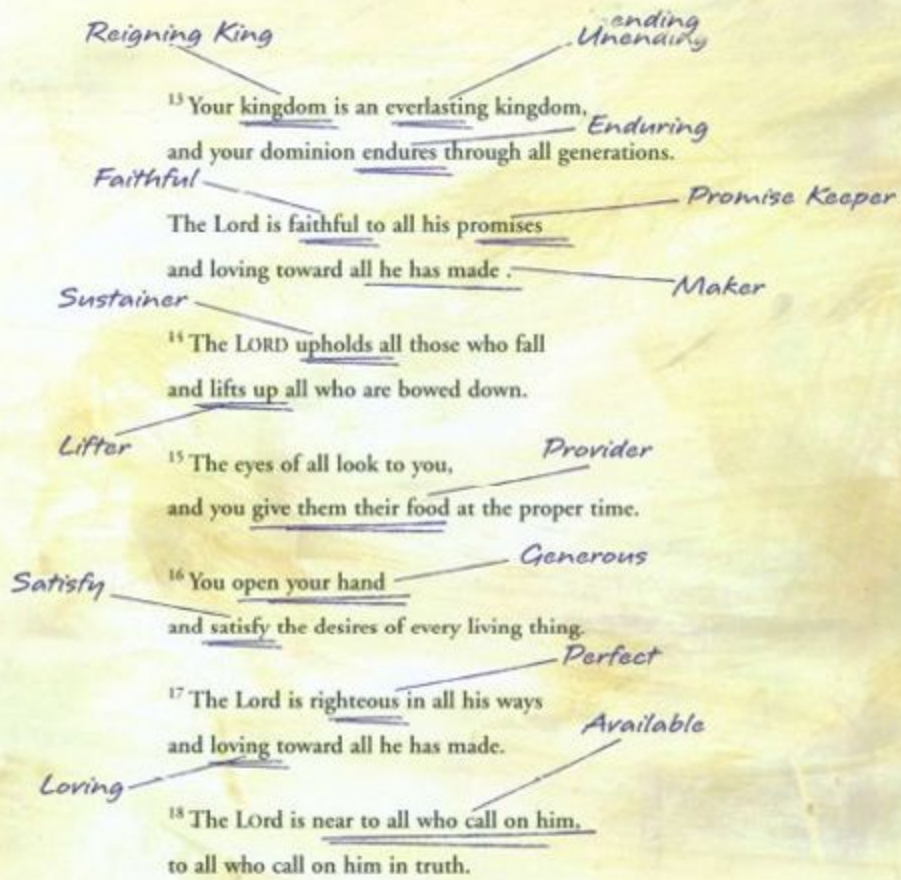 Reigning King
ending
Unending
¹³ Your kingdom is an everlasting kingdom,
Enduring
and your dominion endures through all generations.
Faithful
Promise Keeper
The Lord is faithful to all his promises
and loving toward all he has made .
Maker
Sustainer
¹⁴ The LORD upholds all those who fall
and lifts up all who are bowed down.
Lifter
Provider
¹⁵ The eyes of all look to you,
and you give them their food at the proper time.
Generous
Satisfy
¹⁶ You open your hand
and satisfy the desires of every living thing.
Perfect
¹⁷ The Lord is righteous in all his ways
Available
and loving toward all he has made.
Loving
¹⁸ The LOrd is near to all who call on him,
to all who call on him in truth.